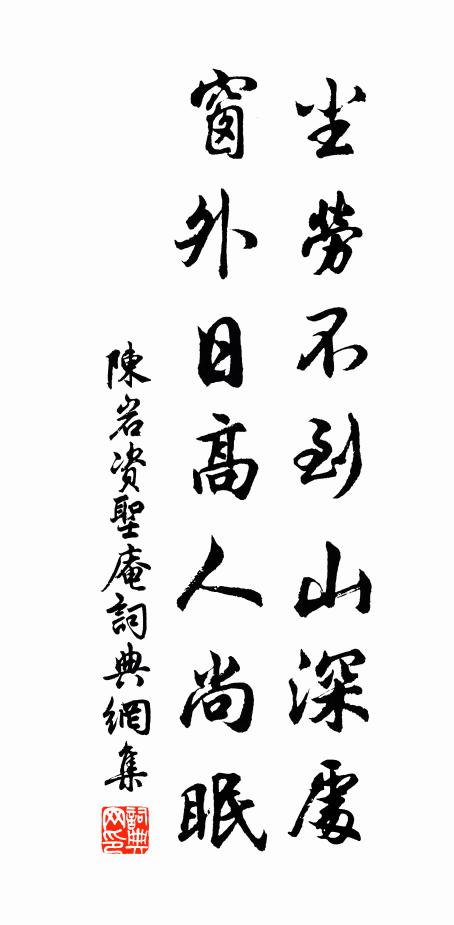 尘劳不到山深處
窗外日高人尚眠
陳岩资聖庵詞典網集
詞典网印